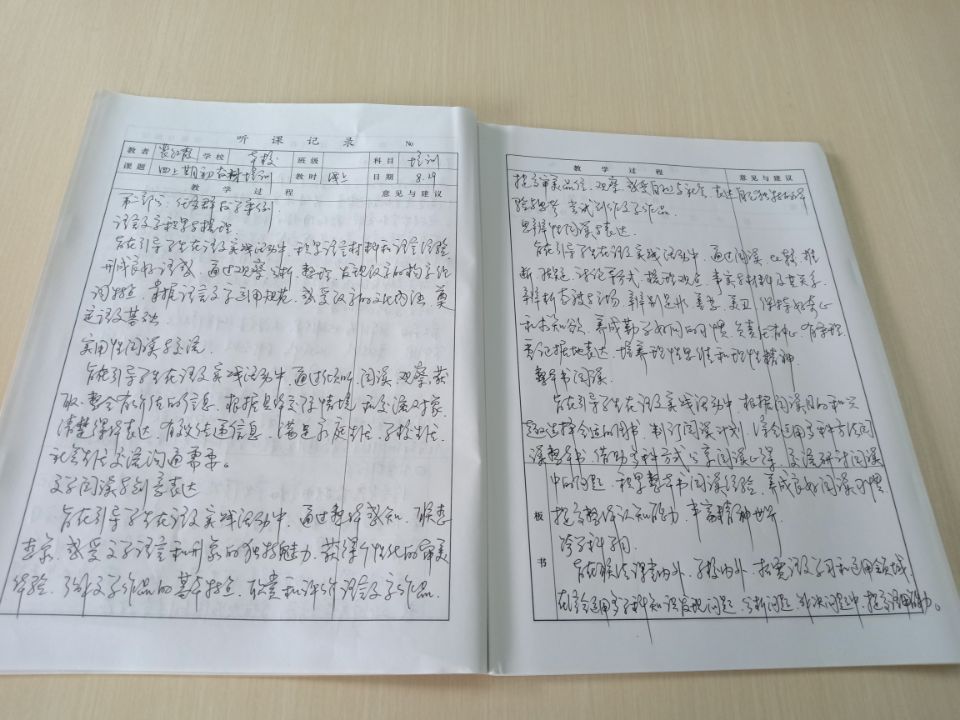 听 课 记 录 №
教者 学校 班级 科目 培训
课题 四上期初教材培训 教时 线上 日期 8.19
教 学 过 程 意见与建议
第一部分：任务群教学案例.
语言文字积累与梳理
旨在引导学生在语文实践活动中, 积累语言材料和语言经验,
形成良好语感, 通过观察、分析、整理, 发现汉字的构字组
词特点, 掌握语言文字运用规范, 感受汉字的文化内涵, 奠
定语文基础.
实用性阅读与交流.
旨在引导学生在语文实践活动中, 通过倾听、阅读、观察, 获
取、整合有价值的信息, 根据具体交际情境和交流对象,
清楚得体表达, 有效传递信息, 满足家庭生活、学校生活、
社会生活交流沟通需要。
文学阅读与创意表达
旨在引导学生在语文实践活动中, 通过整体感知、联想
想象, 感受文学语言和形象的独特魅力, 获得个性化的审美
体验, 了解文学作品的基本特点, 欣赏和评价语言文字作品,
教 学 过 程 意见与建议
提高审美品位, 观察、感受自然与社会, 表达自己独特的体
验与思考, 尝试创作文学作品.
思辨性阅读与表达.
旨在引导学生在语文实践活动中, 通过阅读、比较、推
断、质疑、讨论等方式, 梳理观点、事实与材料及其关系,
辨析态度与立场, 辨别是非、善恶、美丑, 保持好奇心
和求知欲, 养成勤学好问的习惯, 负责任、有中心、有条理、
重证据地表达, 培养理性思维和理性精神.
整本书阅读.
旨在引导学生在语文实践活动中, 根据阅读目的和兴
趣选择合适的图书, 制订阅读计划, 综合运用多种方法阅
读整本书, 借助多种方式分享阅读心得, 交流研讨阅读
中的问题, 积累整本书阅读经验, 养成良好阅读习惯,
提高整体认知能力, 丰富精神世界.
跨学科学习.
旨在联结课堂内外、学校内外, 拓宽语文学习和运用领域,
在综合运用多学科知识发现问题、分析问题、解决问题中, 提高语用能力。
板书